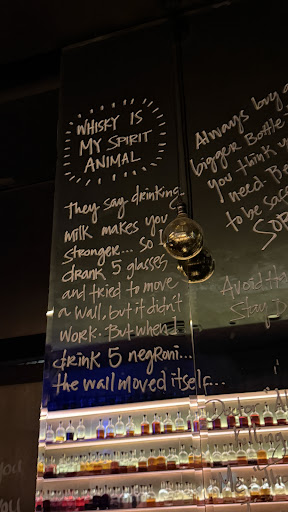 WHISKY IS
MY SPIRIT
ANIMAL
They say drinking
milk makes you
stronger... so I
drank 5 glasses
and tried to move
a wall, but it didn't
work. But when I
drink 5 negroni...
the wall moved itself...
Always buy a
bigger Bottle
you think
need
to be safe
Avoid
Stay
you